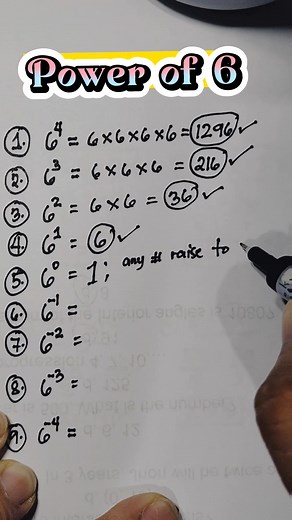 Power of 6
1. 6⁴ = 6×6×6×6 = 1296 ✓
2. 6³ = 6×6×6 = 216 ✓
3. 6² = 6×6 = 36 ✓
4. 6¹ = 6 ✓
5. 6⁰ = 1; any # raise to
6. 6⁻¹ =
7. 6⁻² =
8. 6⁻³ =
9. 6⁻⁴ =